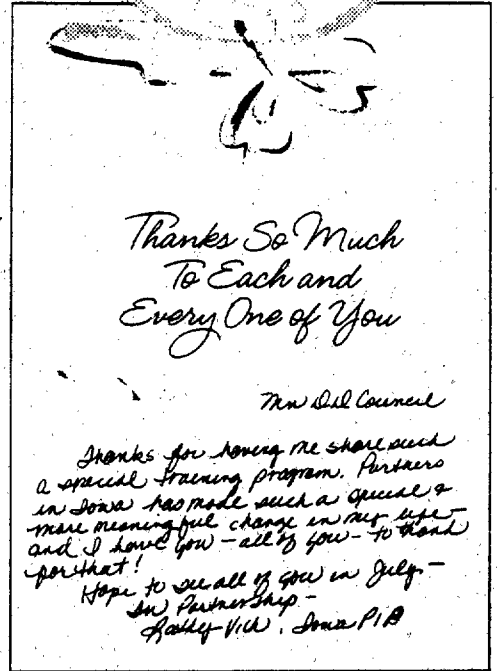 Thanks So Much
To Each and
Every One of You
Mn DD Council
Thanks for having me share such
a special training program. Partners
in Iowa has made such a special &
more meaningful change in my life -
and I have you - all of you - to thank
for that!
Hope to see all of you in July -
In Partnership -
Kathy , Iowa PIP